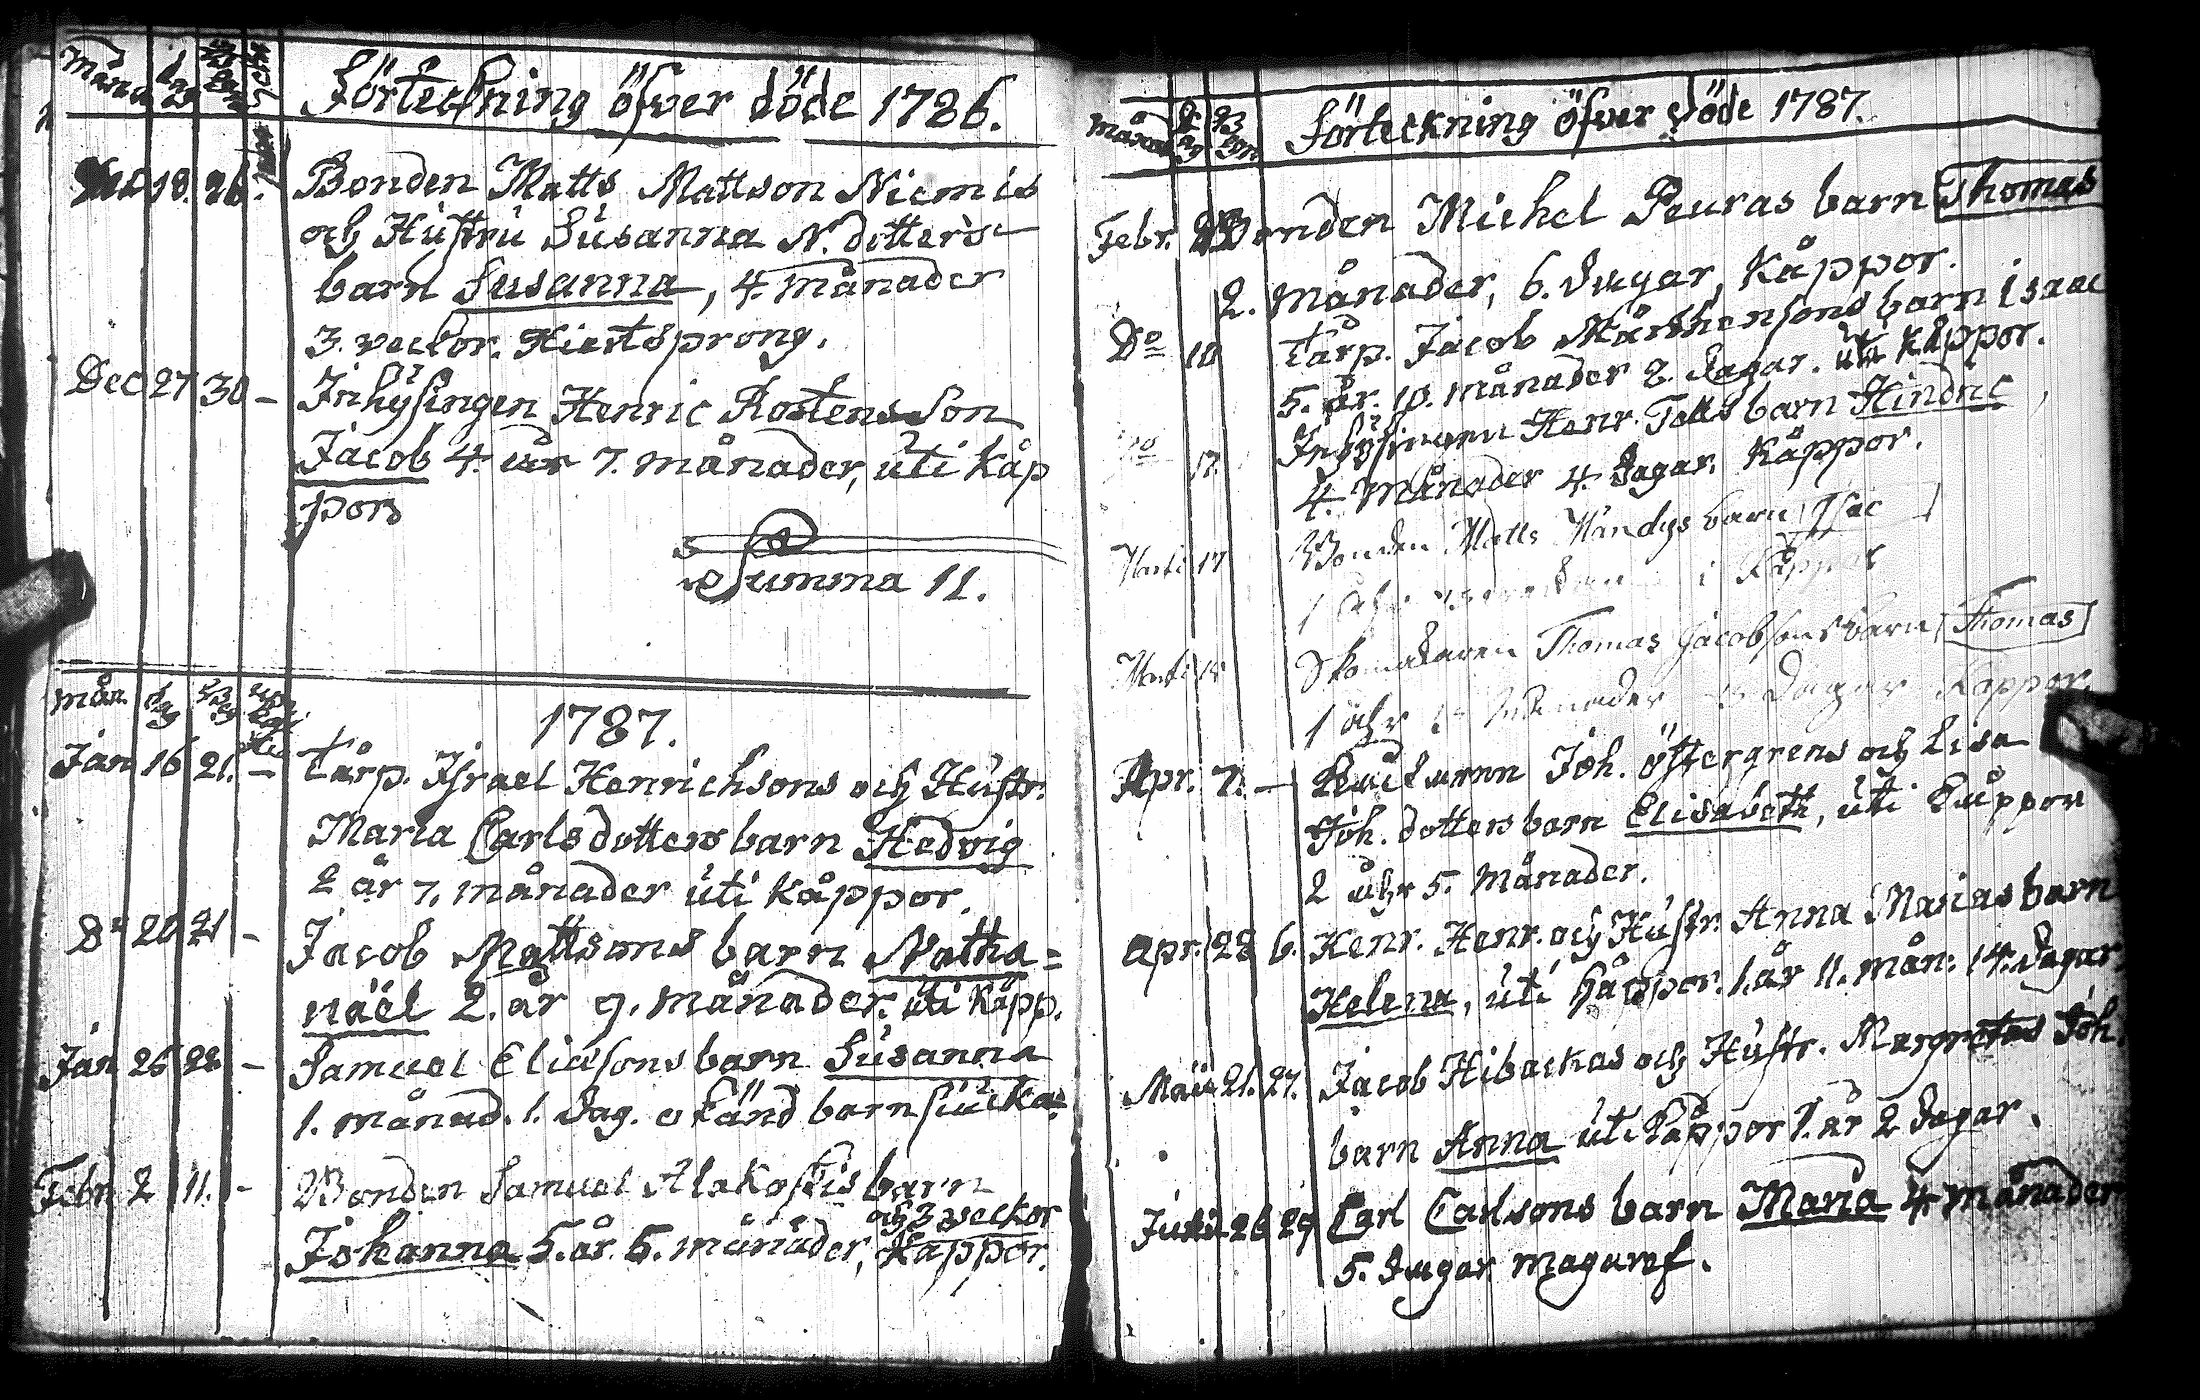 Månad dag
Förteckning öfver döde 1786.
18. 26. Bonden Matts Mattson Niemis
och Hustru Susanna N. dotters
barn Susanna, 4. månader
3. veckor. Hiertsprong.
Dec 27 30 – Inhysingen Henric Rostens Son
Jacob 4. år 7. månader, uti Kåp
por
Summa 11.
mån. dag
1787.
Jan 16 21. – Tårp. Israel Henrichsons och Hustr.
Maria Carlsdotters barn Hedvig
2 år 7. månader uti Kåppor.
Do 20 21 – Jacob Mattsons barn Natha=
näel 2. år 9. månader. uti Kåpp.
Jan 26 28 – Samuel Eliæsons barn Susanna
1. månad. 1. Dag. okänd barnsiuka
Febr 2 11. – Bonden Samuel Alakoskis barn
och 3 veckor
Johanna 5. år 6. månader, Kåppor.
Månad dag
Förteckning öfver döde 1787.
Febr. Bonden Michel Peuras barn Thomas
2. månader, 6. Dagar, Kåppor.
Do 10 Tårp. Jacob Mårthensons barn Isaac
5. år. 10. månader 2. Dagar. uti Kåppor.
Do 17. Inhysingen Henr. Tolls barn Hindric
4. Månader 4. Dagar. Kåppor.
Marti 17 Bonden Matts barn Isac
1 åhr i Kåppor
Marti Skomakaren Thomas Jacobsons barn Thomas
1 åhr Månader Dagar Kåppor.
Apr. 7. – Joh. östergrens och Lisa
Joh. dotters barn Elisabeth, uti Kåppor
2 åhr 5. Månader.
Apr. 28 6. Henr. Henr. och Hustr. Anna Marias barn
Helena, uti Kåppor. 1. år 11. mån: 14. Dagar.
Maii 21. 27. Jacob Hibackas och Hustr. Margretas Joh.
barn Anna uti Kåppor 1. år 2 Dagar.
26 29 Carl Carlsons barn Maria 4 månader
5. Dagar magaref.